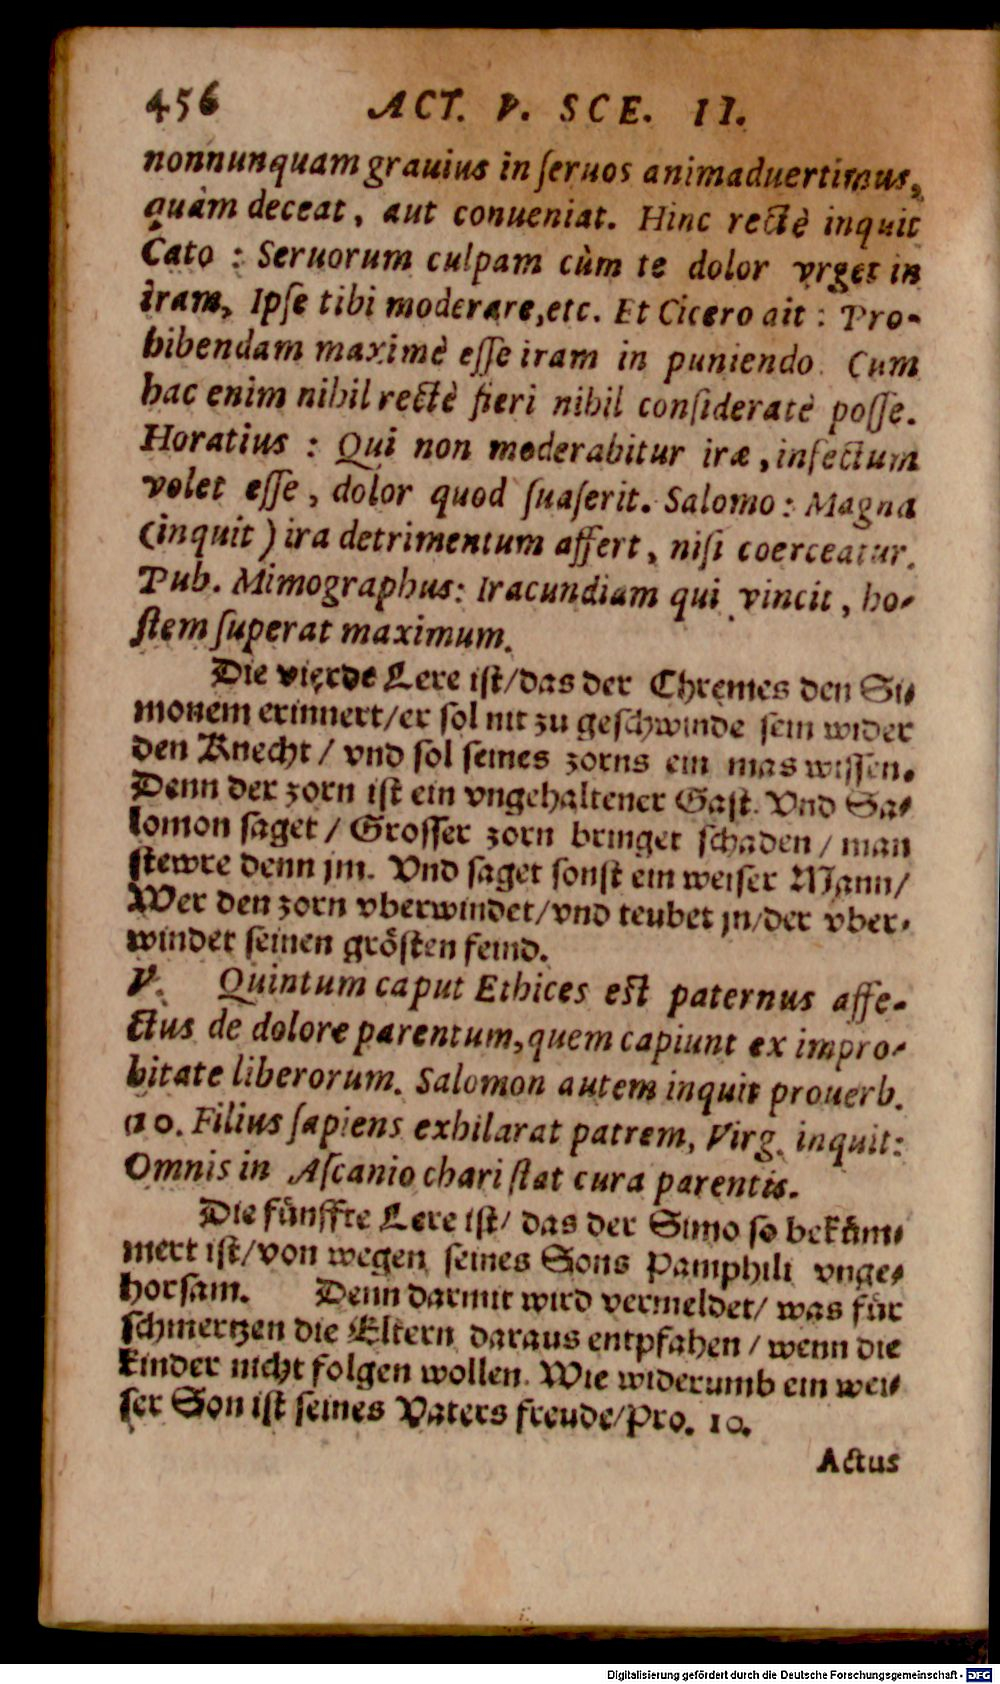 456 ACT. V. SCE. II.
nonnunquam grauius in ſeruos animaduertimus,
quàm deceat, aut conueniat. Hinc rectè inquit
Cato : Seruorum culpam cùm te dolor vrget in
iram, Ipſe tibi moderare,etc. Et Cicero ait : Pro-
hibendam maximè eſſe iram in puniendo. Cum
hac enim nihil rectè fieri nihil conſideratè poſſe.
Horatius : Qui non moderabitur iræ, infectum
volet eſſe, dolor quod ſuaſerit. Salomo : Magna
(inquit) ira detrimentum affert, niſi coerceatur.
Pub. Mimographus: Iracundiam qui vincit, ho-
ſtem ſuperat maximum.
Die vierde Lere iſt/das der Chremes den Si-
monem erinnert/er ſol nit zu geſchwinde ſein wider
den Knecht / vnd ſol ſeines zorns ein mas wiſſen.
Denn der zorn iſt ein vngehaltener Gaſt. Vnd Sa-
lomon ſaget / Groſſer zorn bringet ſchaden / man
ſtewre denn jm. Vnd ſaget ſonſt ein weiſer Mann/
Wer den zorn vberwindet/vnd teubet jn/der vber-
windet ſeinen gröſten feind.
V. Quintum caput Ethices eſt paternus affe-
ctus de dolore parentum, quem capiunt ex impro-
bitate liberorum. Salomon autem inquit prouerb.
10. Filius ſapiens exhilarat patrem, Virg. inquit:
Omnis in Aſcanio chari ſtat cura parentis.
Die fünffte Lere iſt/ das der Simo ſo beküm-
mert iſt/von wegen ſeines Sons Pamphili vnge-
horſam. Denn darmit wird vermeldet/ was für
ſchmertzen die Eltern daraus entpfahen / wenn die
kinder nicht folgen wollen. Wie widerumb ein wei-
ſer Son iſt ſeines Vaters freude/Pro. 10.
Actus
Digitalisierung gefördert durch die Deutsche Forschungsgemeinschaft - DFG